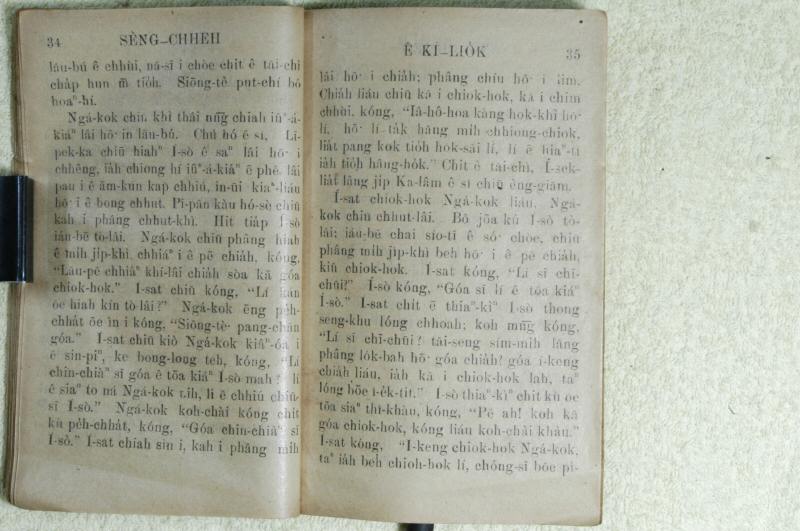 34 SÈNG–CHHEH
lāu-bú ê chhùi, ná-sī i chòe chit ê tāi-chì
cha̍p hun m̄ tio̍h. Siōng-tè put-chí bô
hoaⁿ-hí.
Ngá-kok chiū khì thâi nn̄g chiah iûⁿ-á-
kiáⁿ lâi hō· in lāu-bú. Chú hó ê sî, Lī-
pek-ka chiū hiahⁿ Í-sò ê saⁿ lâi hō· i
chhēng, ia̍h chiong hí iûⁿ-á-kiáⁿ ê phê lâi
pau i ê ām-kún kap chhiú, in-ūi kiaⁿ-liáu
hō· i ê bong chhut. Pī-pān kàu hó-sè chiū
kah i phâng chhut-khì. Hit tia̍p Í-sò
iáu-bē tò-lâi. Ngá-kok chiū phâng hiah
ê mi̍h ji̍p-khì, chhiáⁿ i ê pē chia̍h, kóng,
“Lāu-pē chhiáⁿ khí-lâi chia̍h sòa kā góa
chiok-hok.” Í-sat chiū kóng, “Lí kán
ōe hiah kín tò-lâi?” Ngá-kok ēng pe̍h-
chha̍t ōe ìn i kóng, “Siōng-tè· pang-chān
góa.” Í-sat chiū kiò Ngá-kok kiâⁿ-óa i
ê sin-piⁿ, ke bong-long teh, kóng, “Lí
chin-chiàⁿ sī góa ê tōa kiáⁿ Í-sò mah? lí
ê siaⁿ to ná Ngá-kok nih, lí ê chhiú chiū-
sī Í-sò.” Ngá-kok koh-chài kóng chi̍t
kù pe̍h-chha̍t, kóng, “Góa chin-chiàⁿ sī
Í-sò.” Í-sat chiah sìn i, kah i phâng mi̍h
Ê KÌ–LIO̍K 35
lâi hō· i chia̍h; phâng chíu hō· i lim.
Chia̍h liáu chiū kā i chiok-hok, kā i chim
chhùi, kóng, “Iâ-hô-hoa kàng hok-khì hō·
lí, hō· lí ta̍k hāng mi̍h chhiong-chiok,
lia̍t pang kok tio̍h ho̍k-sāi lí, lí ê hiaⁿ-tī
ia̍h tio̍h hâng-ho̍k.” Chit ê tāi-chì, Í-sek-
lia̍t lâng ji̍p Ka-lâm ê sî chiū èng-giām.
Í-sat chiok-hok Ngá-kok liáu, Ngá-
kok chiū chhut-lâi. Bô jōa kú Í-sò tò-
lâi; iáu-bē chai sio-tī ê só· chòe, chiū
phâng mi̍h ji̍p-khì beh hō· i ê pē chia̍h,
kiû chiok-hok. Í-sat kóng, “Lí sī chī-
chūi?” Í-sò kóng, “Góa sī lí ê tōa kiáⁿ
Í-sò.” Í-sat chi̍t ē thiaⁿ-kìⁿ Í-sò thong
seng-khu lóng chhoah; koh mn̄g kóng,
“Lí sī chī-chūi? tāi-seng sím-mi̍h lâng
phâng lo̍k-bah hō· góa chia̍h? góa í-keng
chia̍h liáu, ia̍h kā i chiok-hok lah, taⁿ
lóng bōe i-e̍k-tit.” Í-sò thiaⁿ-kìⁿ chit kù oe
tōa siaⁿ thî-khàu, kóng, “Pē ah! koh kā
góa chiok-hok, kóng liáu koh-chài kháu.”
Í-sat kóng, “Í-keng chiok-hok Ngá-kok,
taⁿ ia̍h beh chiok-hok lí, chóng-sī bōe pí-